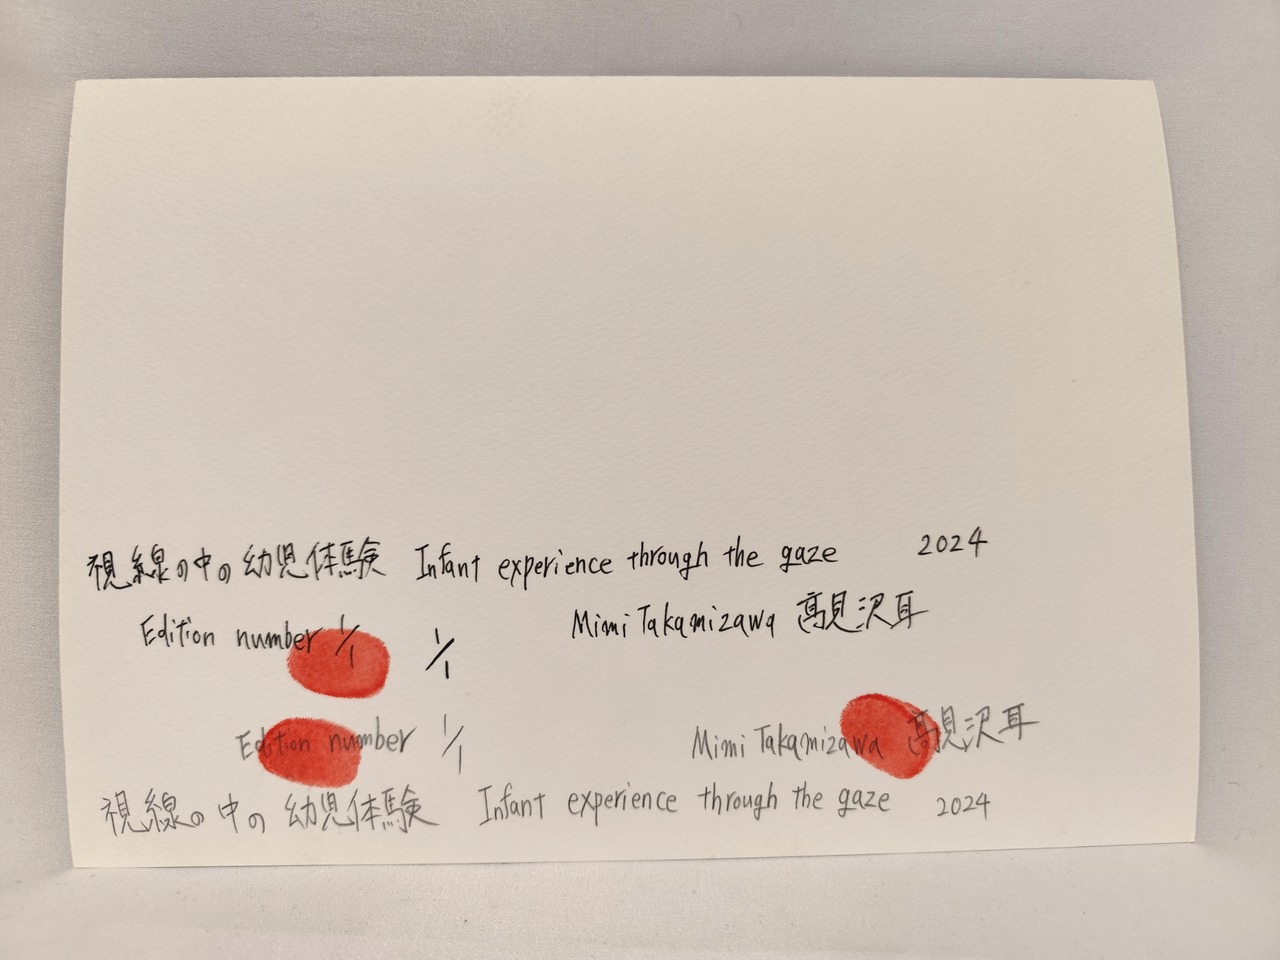 視線の中の幼児体験 Infant experience through the gaze 2024
Edition number 1/1 1/1 Mimi Takamizawa 髙見沢耳
Edition number 1/1 Mimi Takamizawa 髙見沢耳
視線の中の幼児体験 Infant experience through the gaze 2024